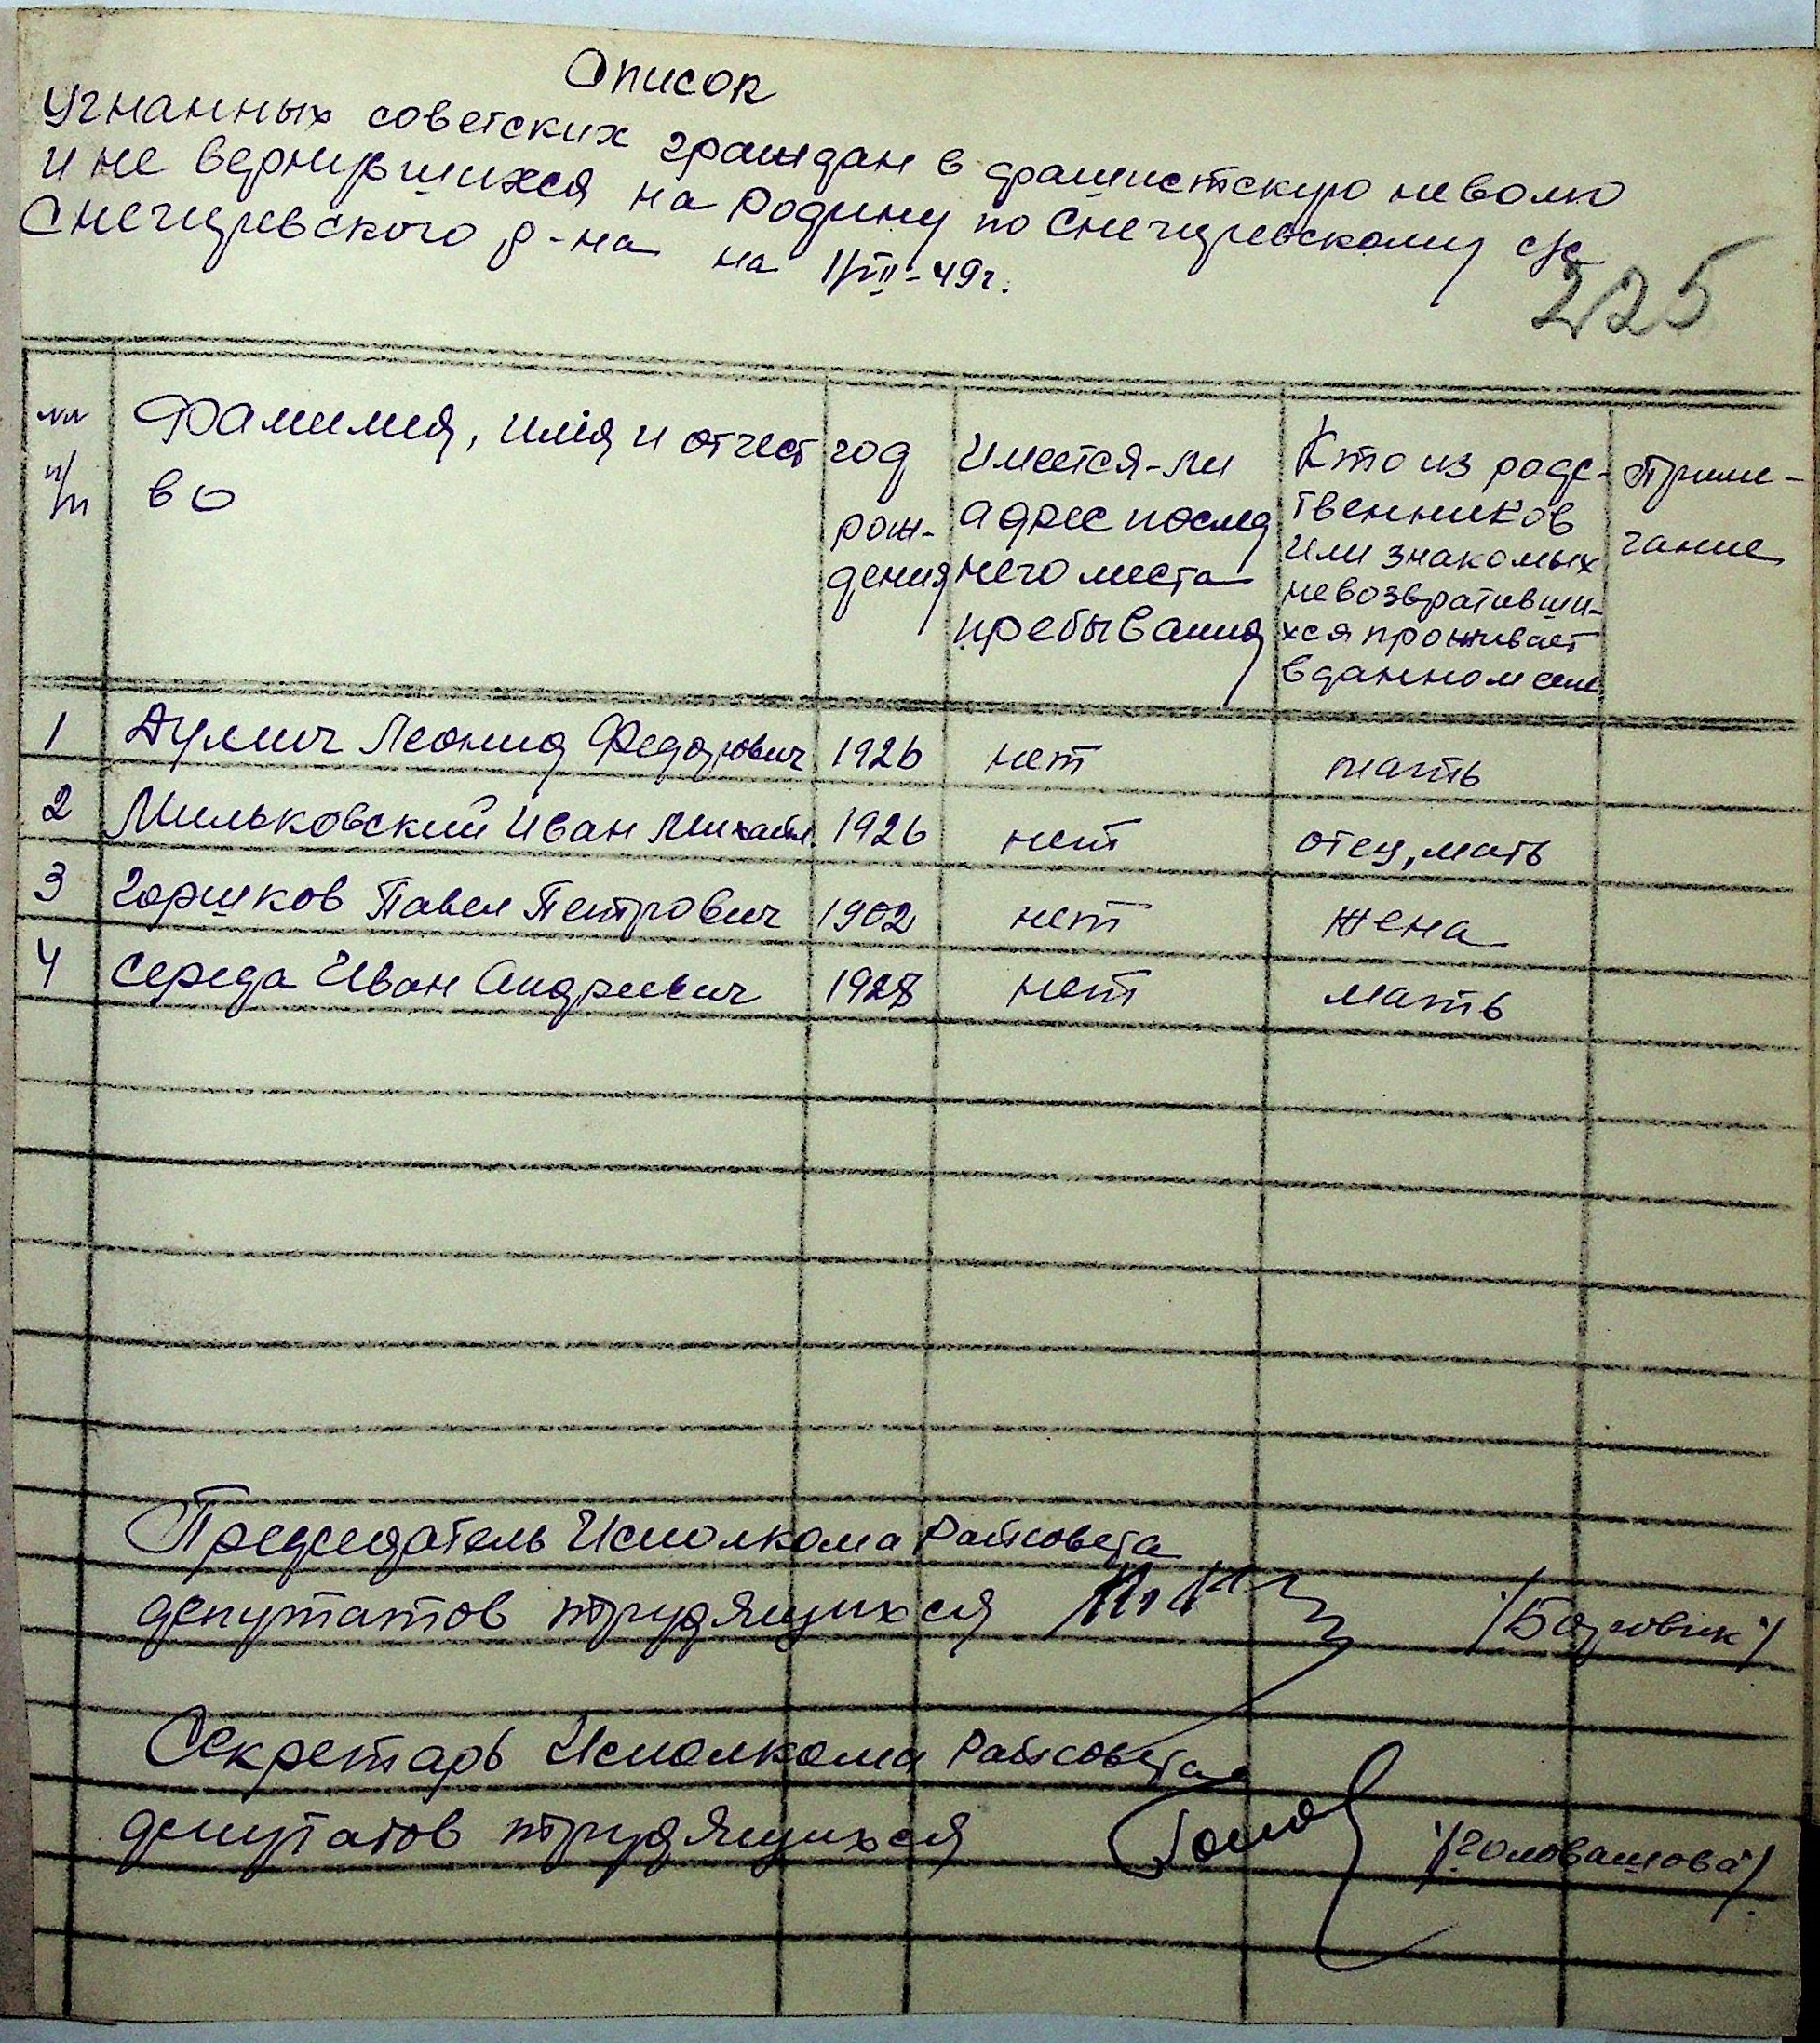 Список
угнанных советских граждан в фашистскую неволю
и не вернувшихся на Родину по Снегиревскому с/с
Снегиревского р-на на 1/VII-49г.
225
№№ п/п
Фамилия, имя и отчест во
год рож- дения
Имеется-ли адрес послед него места пребывания
Кто из родс- твенников или знакомых невозвративши- хся проживает в данном селе
Приме- чание
1 Дулич Леонид Федорович 1926 нет мать
2 Мильковский Иван Михайл. 1926 нет отец, мать
3 Горшков Павел Петрович 1902 нет жена
4 Середа Иван Андреевич 1928 нет мать
Председатель Исполкома Райсовета
депутатов трудящихся /Боровик/
Секретарь Исполкома Райсовета
депутатов трудящихся /Головашова/